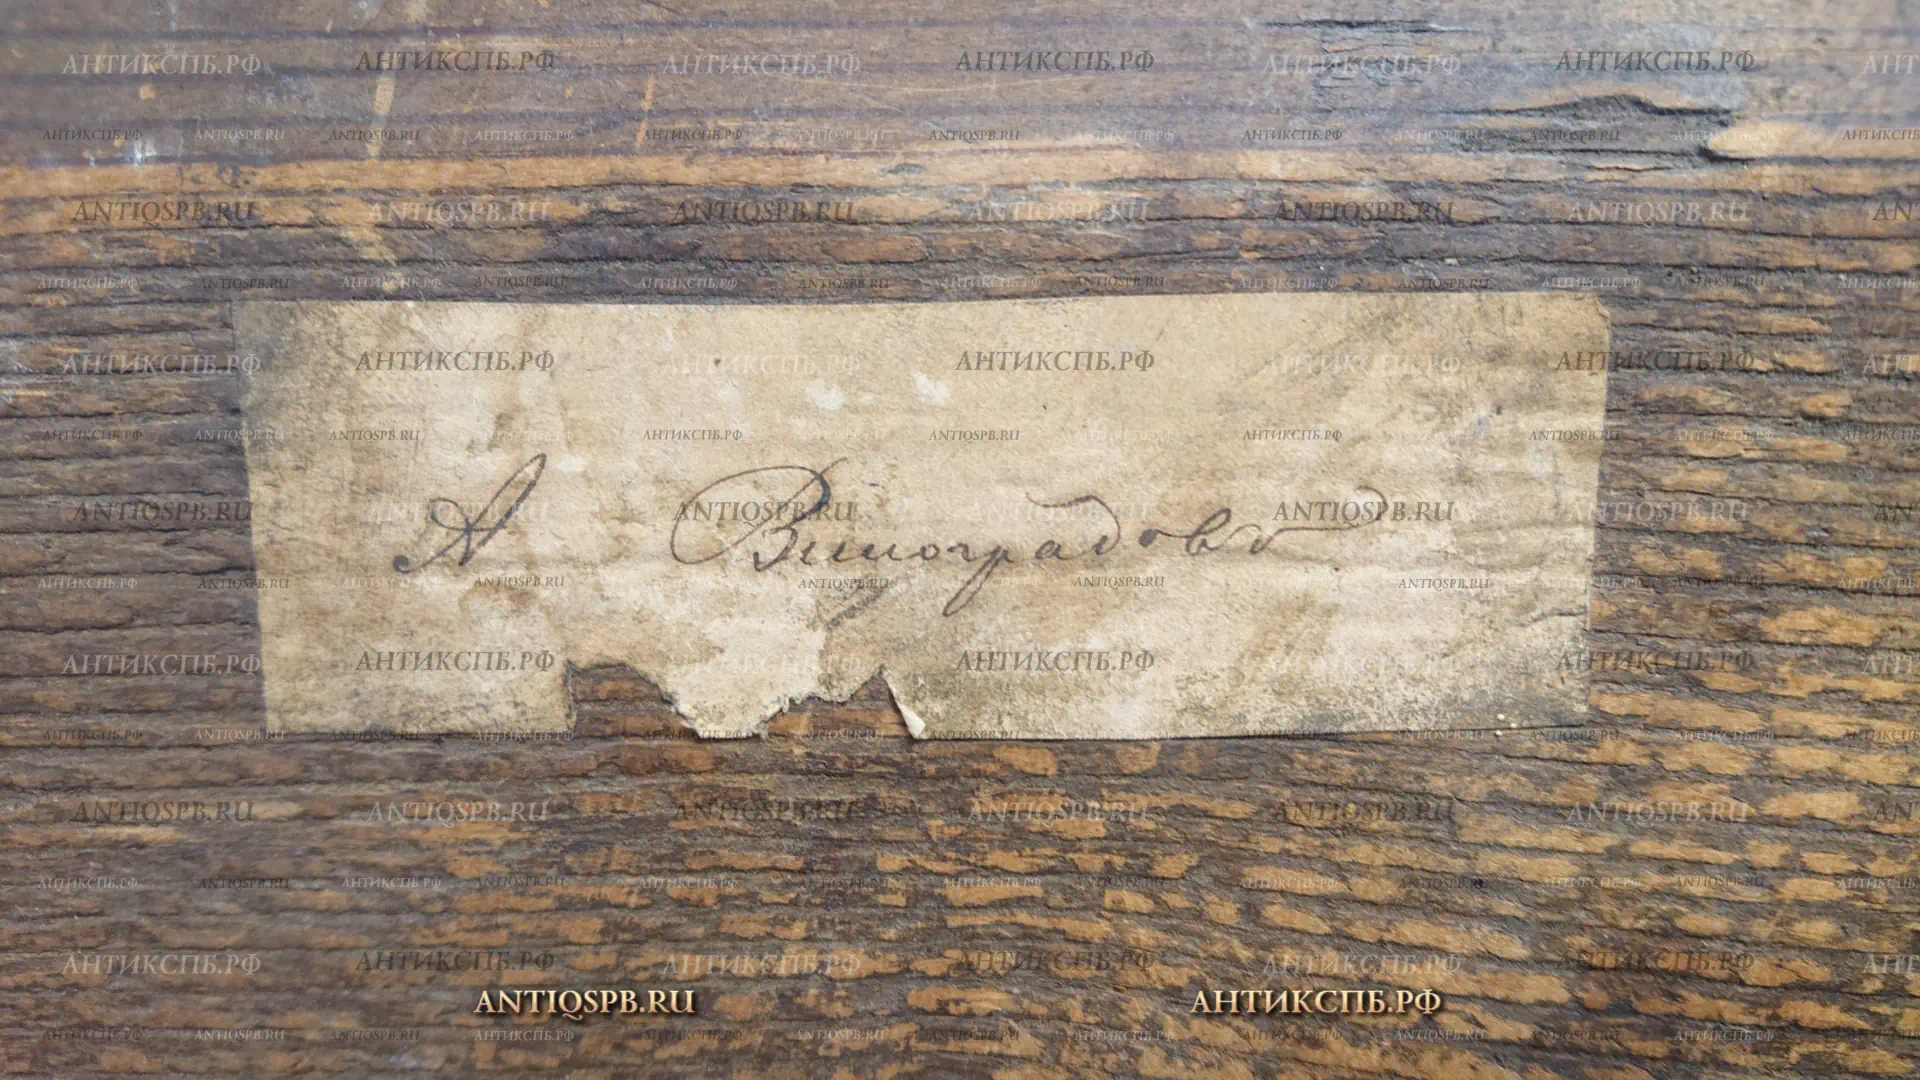 А Виноградовъ
ANTIQSPB.RU АНТИКСПБ.РФ